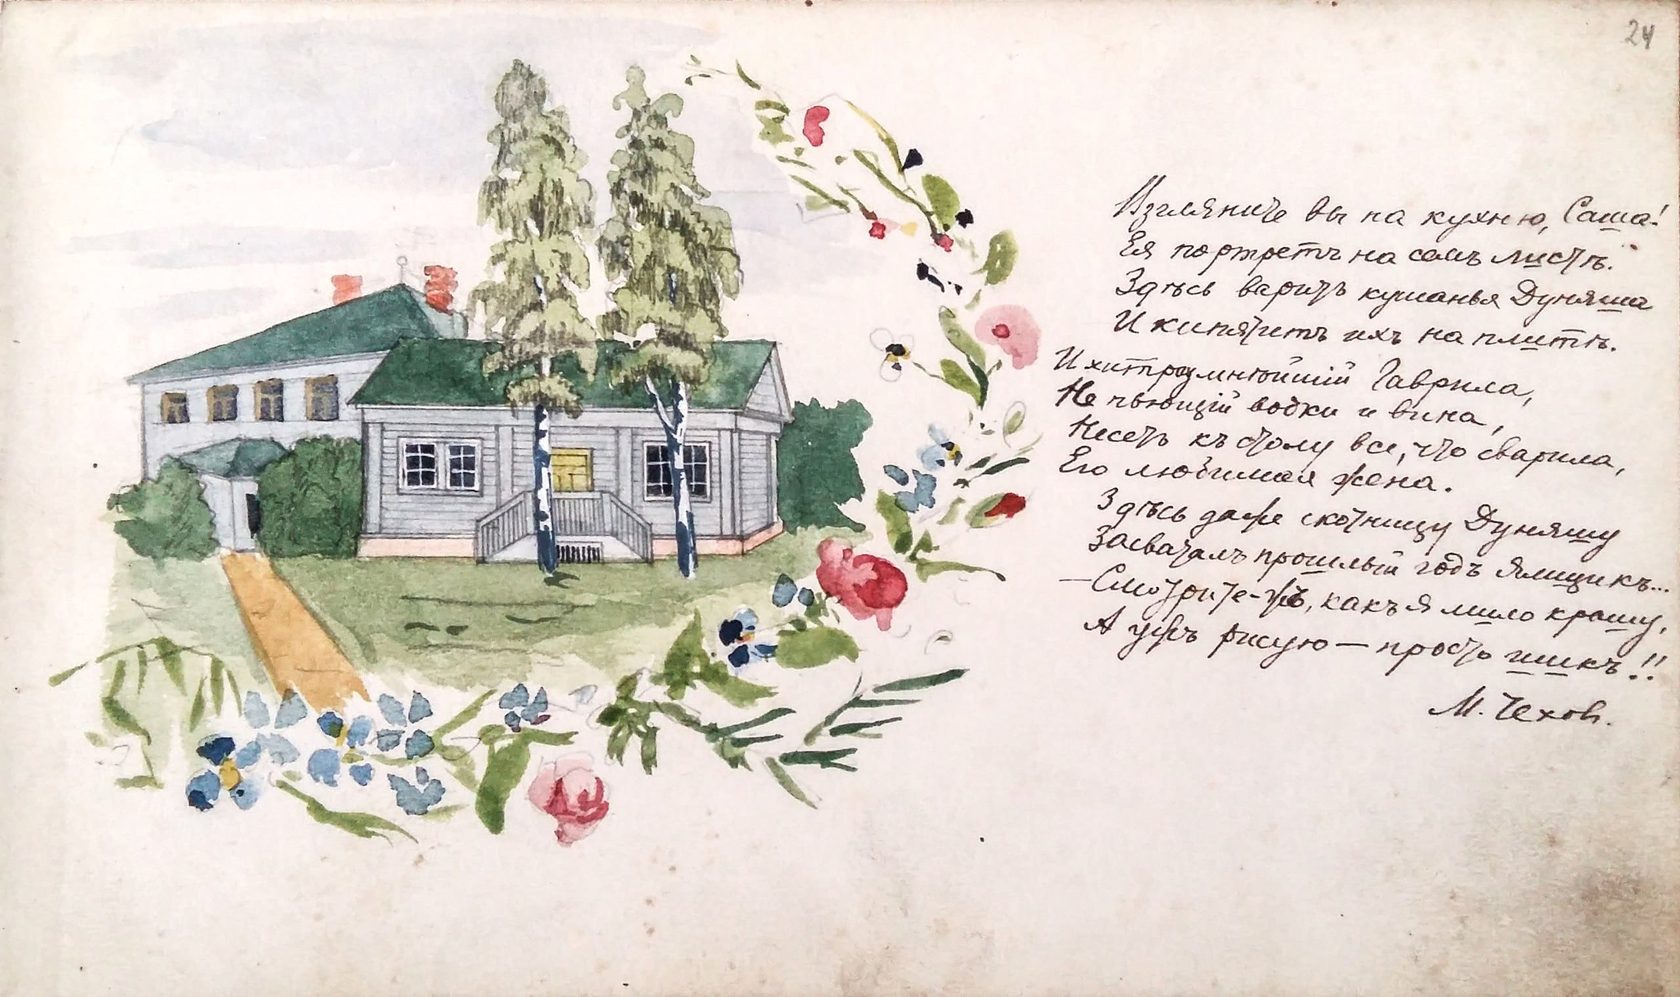 24
Взгляните вы на кухню, Саша!
Ея портретъ на семъ листѣ.
Здѣсь варитъ кушанья Дуняша
И кипятитъ ихъ на плитѣ.
И хитроумнѣйшій Гаврила,
Не пьющій водки и вина,
Несетъ къ столу все, что сварила,
Его любимая жена.
Здѣсь даже скотницу Дуняшу
Засваталъ прошлый годъ Ямщикъ...
—Смотрите-жъ, какъ я мило крашу,
А ужъ рисую — просто шикъ!!
М. Чехов.